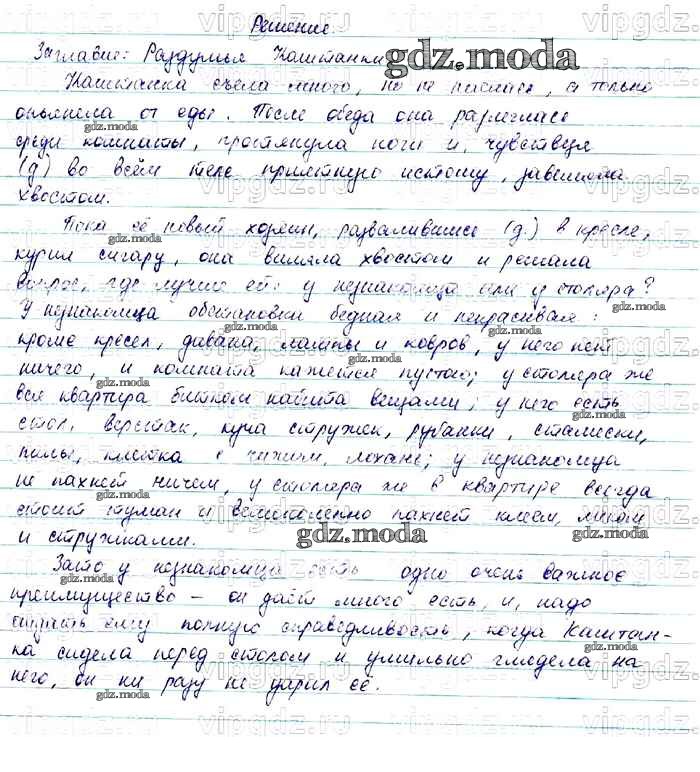 Решение.
Заглавие: Раздумья Каштанки
Каштанка съела много, но не наелась, а только
опьянела от еды. После обеда она разлеглась
среди комнаты, протянула ноги и, чувствуя
(д) во всём теле приятную истому, завиляла
хвостом.
Пока её новый хозяин, развалившись (д.) в кресле,
курил сигару, она виляла хвостом и решала
вопрос, где лучше ей: у незнакомца или у столяра?
У незнакомца обстановка бедная и некрасивая:
кроме кресел, дивана, лампы и ковров, у него нет
ничего, и комната кажется пустою; у столяра же
вся квартира битком набита вещами; у него есть
стол, верстак, куча стружек, рубанки, стамески,
пилы, клетка с чижом, лохань; у незнакомца
не пахнет ничем, у столяра же в квартире всегда
стоит туман и великолепно пахнет клеем, лаком
и стружками.
Зато у незнакомца есть одно очень важное
преимущество — он даёт много есть, и, надо
отдать ему полную справедливость, когда Каштан-
ка сидела перед столом и умильно глядела на
него, он ни разу не ударил её.
gdz.moda
vipgdz.ru